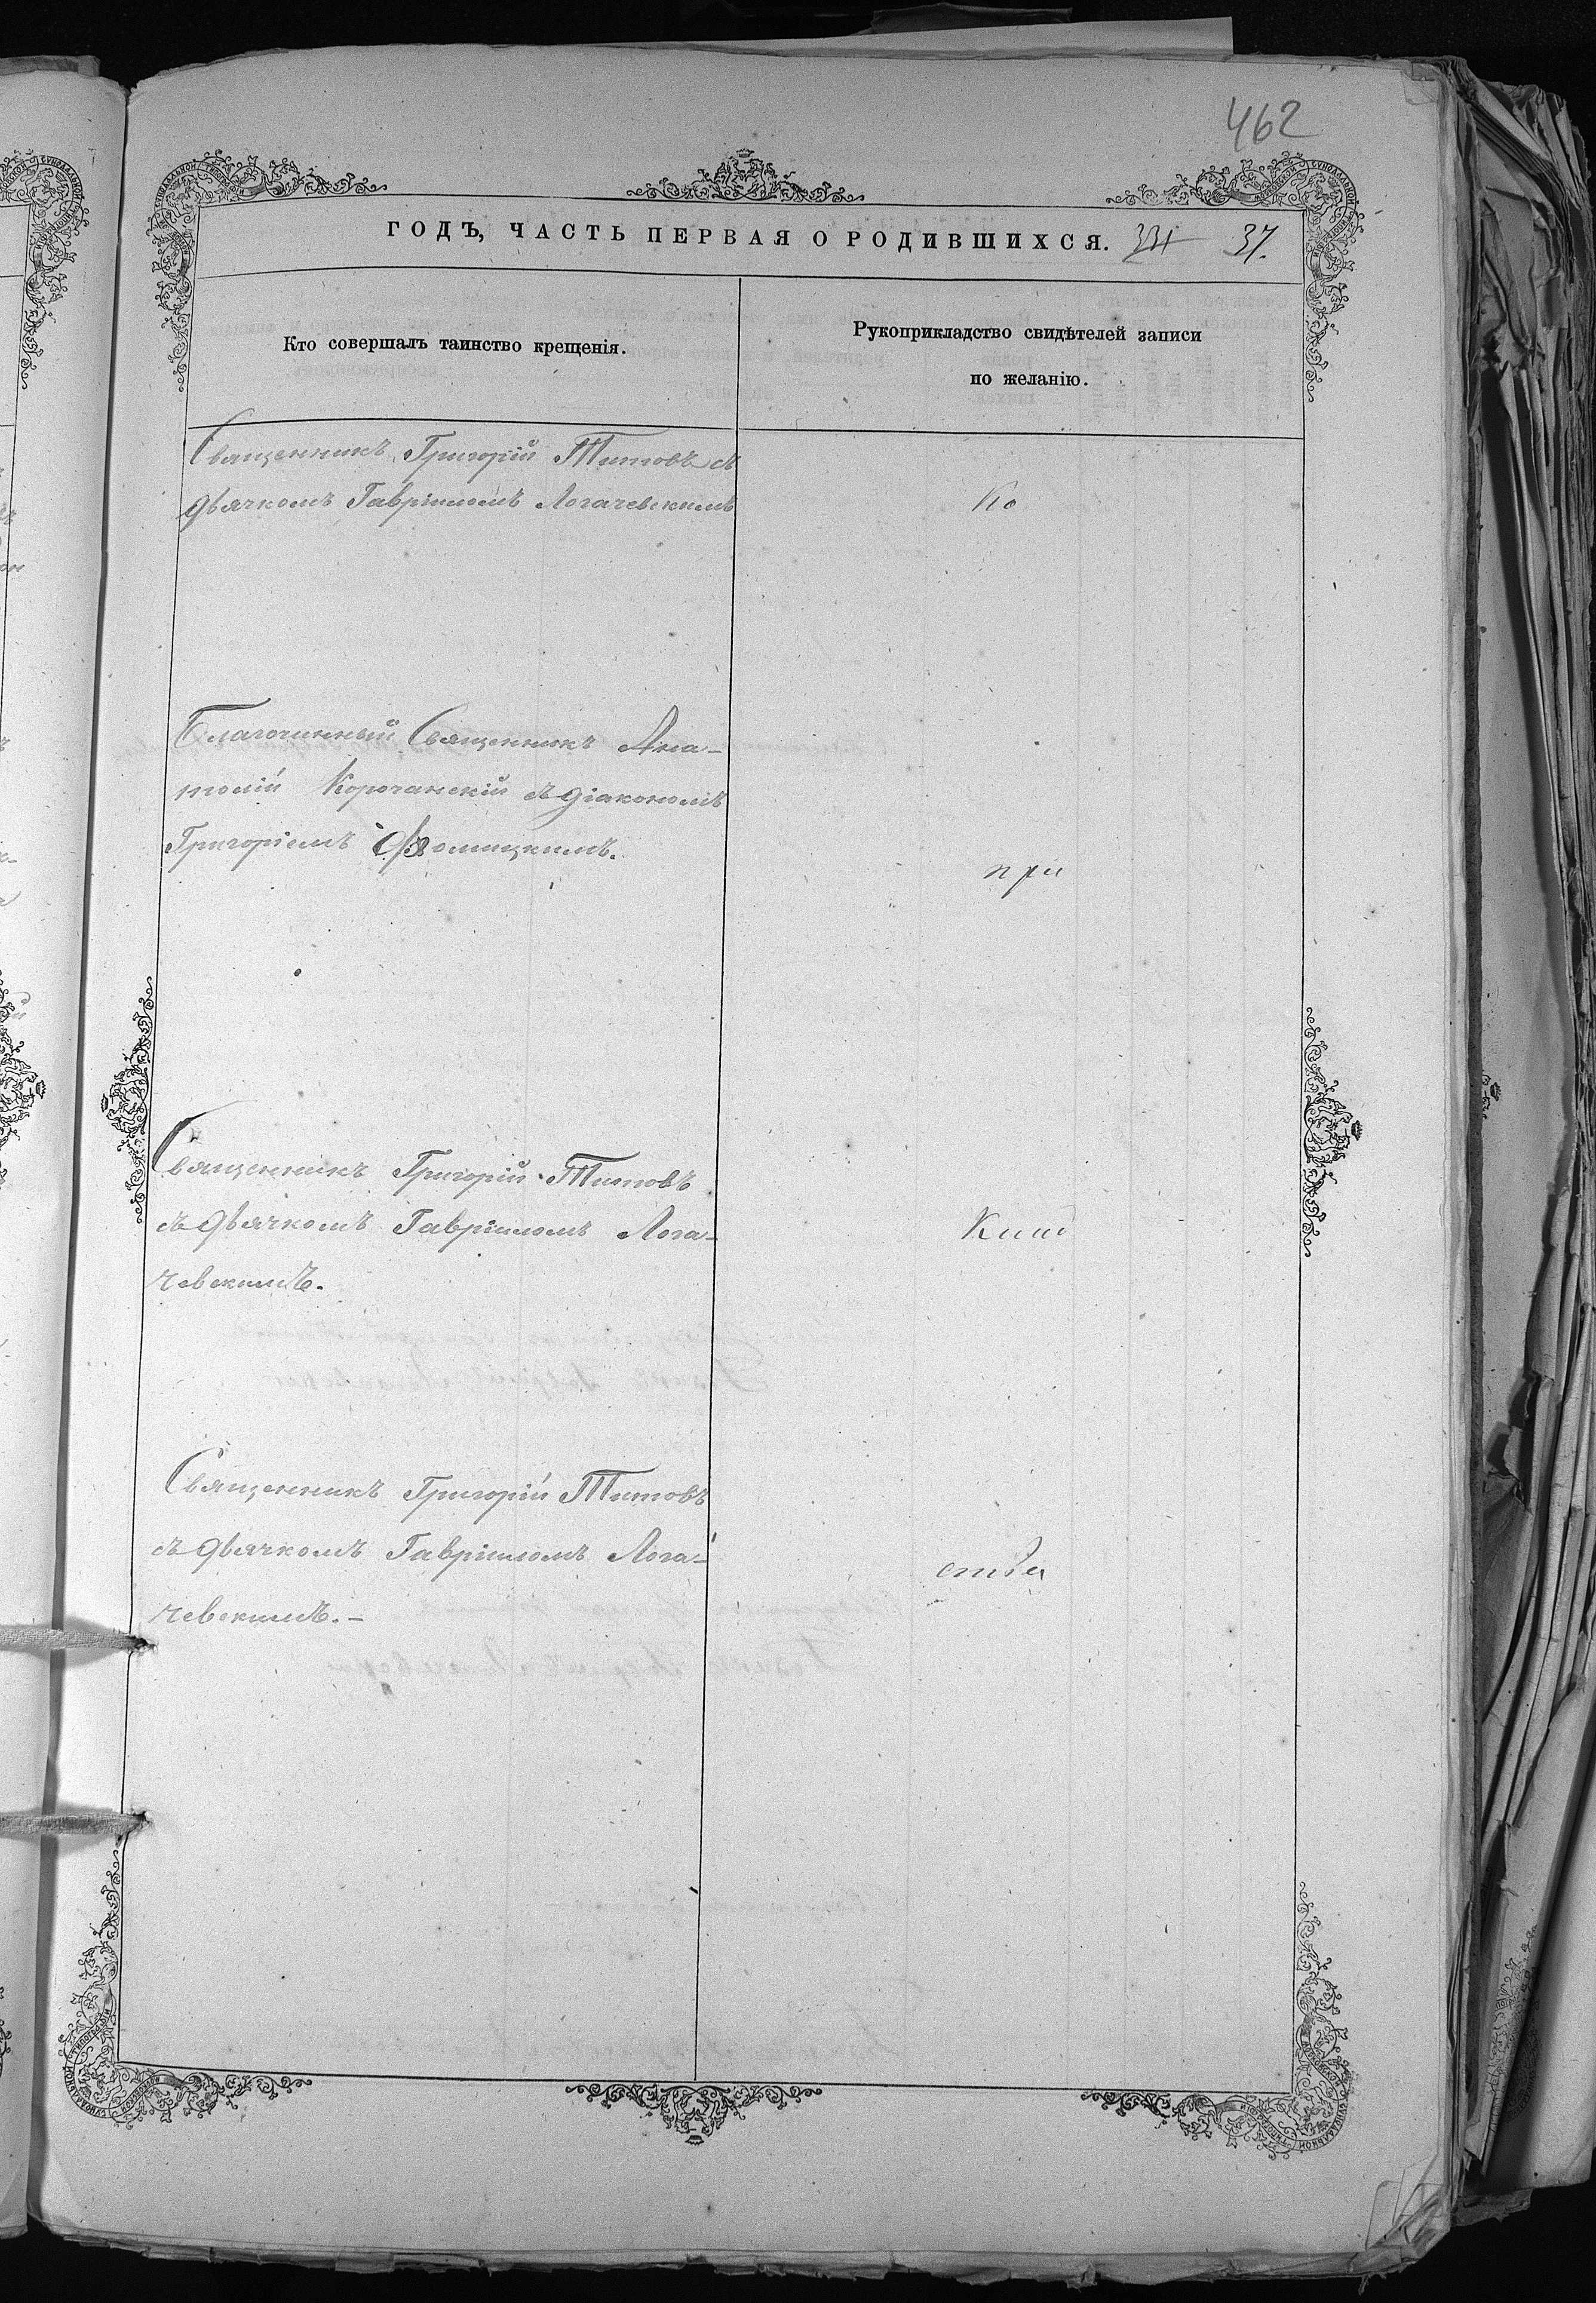 462
ГОДЪ, ЧАСТЬ ПЕРВАЯ О РОДИВШИХСЯ. 37.
Кто совершалъ таинство крещенія.
Рукоприкладство свидѣтелей записи
по желанію.
Священникъ Григорій Титовъ съ
дьячкомъ Гавріиломъ Логачевскимъ
Ко
Благочинный Священникъ Ана-
толій Корочанскій съ діакономъ
Григоріемъ
при
Священникъ Григорій Титовъ
съ дьячкомъ Гавріиломъ Лога-
чевскимъ.
Священникъ Григорій Титовъ
съ дьячкомъ Гавріиломъ Лога-
чевскимъ.–